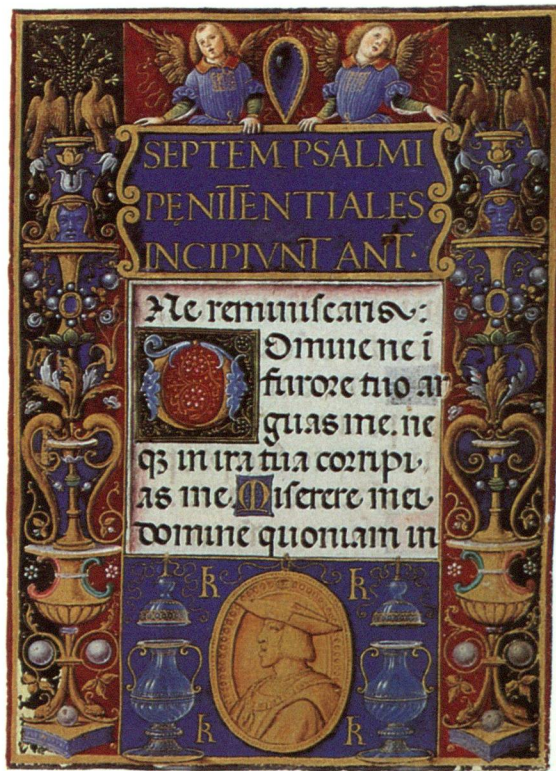 SEPTEM PSALMI
PENITENTIALES
INCIPIVNT ANT.
Ne reminiscaris:
Domine ne ī
furore tuo ar
guas me. ne
qꝫ in ira tua corripi
as me. Miserere mei
domine quoniam in